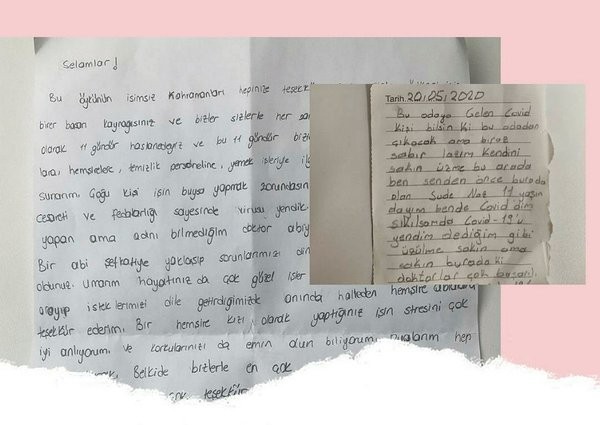 Selamlar!
Bu öykünün isimsiz kahramanları hepinize
birer başarı kaynağısınız ve bizler sizlerle her
olarak 11 gündür hastanedeyiz ve bu 11 gündür
hemşirelere, temizlik personeline, yemek işleriyle
sunarım. Çoğu kişi işin buysa yapmak zorundasın
cesareti ve fedakarlığı sayesinde virüsü yendik.
yapan ama adını bilmediğim doktor
Bir abi şefkatiyle yaklaşıp sorunlarımızı
oldunuz. Umarım hayatınızda çok güzel işler
arayıp isteklerimizi dile getirdiğimizde anında halleden hemşire ablalara
teşekkür ederim. Bir hemşire kızı olarak yaptığınız işin stresini çok
iyi anlıyorum ve korkularınızı da emin olun biliyorum. hep
Belkide bizlerle en çok
teşekkür
Tarih: 20/05/2020
Bu odaya Gelen Covid
kişi bilsin ki bu odadan
çıkacak ama biraz
sabır lazım kendini
sakın üzme bu arada
ben senden önce burada
olan Sude Naz 11 yaşın
dayım bende Covid dim
sıkılsamda Covid-19'u
yendim dediğim gibi
üzülme sakın ama
sakın buradaki
doktorlar çok başarılı